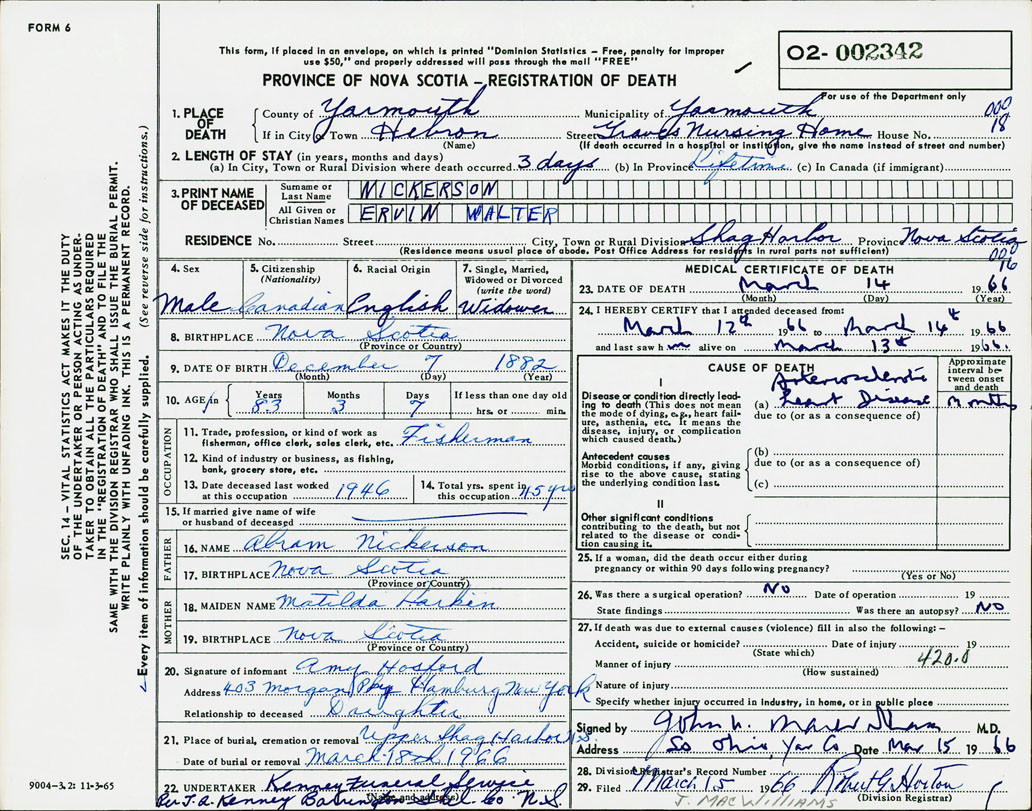 FORM 6
This form, if placed in an envelope, on which is printed "Dominion Statistics – Free, penalty for improper
use $50," and properly addressed will pass through the mail "FREE"
O2- 002342
PROVINCE OF NOVA SCOTIA – REGISTRATION OF DEATH
For use of the Department only
1. PLACE OF DEATH
County of Yarmouth Municipality of Yarmouth
If in City or Town Hebron Street Graves Nursing Home House No.
18
(Name) (If death occurred in a hospital or institution, give the name instead of street and number)
2. LENGTH OF STAY (in years, months and days)
(a) In City, Town or Rural Division where death occurred 3 days (b) In Province Lifetime (c) In Canada (if immigrant)
3. PRINT NAME OF DECEASED
Surname or Last Name NICKERSON
All Given or Christian Names ERVIN WALTER
RESIDENCE No. Street City, Town or Rural Division Shag Harbor Province Nova Scotia
(Residence means usual place of abode. Post Office Address for residents in rural parts not sufficient)
16
4. Sex Male
5. Citizenship (Nationality) Canadian
6. Racial Origin English
7. Single, Married, Widowed or Divorced (write the word) Widower
8. BIRTHPLACE Nova Scotia
(Province or Country)
9. DATE OF BIRTH December 7 1882
(Month) (Day) (Year)
10. AGE Years 83 Months 3 Days 7 If less than one day old
hrs. or min.
OCCUPATION
11. Trade, profession, or kind of work as
fisherman, office clerk, sales clerk, etc. Fisherman
12. Kind of industry or business, as fishing,
bank, grocery store, etc.
13. Date deceased last worked
at this occupation 1946
14. Total yrs. spent in
this occupation 45 yrs
15. If married give name of wife
or husband of deceased
FATHER
16. NAME Abram Nickerson
17. BIRTHPLACE Nova Scotia
(Province or Country)
MOTHER
18. MAIDEN NAME Matilda
19. BIRTHPLACE Nova Scotia
(Province or Country)
20. Signature of informant Amy Hosford
Address 403 Morgan Pky Hamburg New York
Relationship to deceased Daughter
21. Place of burial, cremation or removal Upper Shag Harbor N.S
Date of burial or removal March 18th 1966
22. UNDERTAKER Kenney Funeral Service
(Name and address)
Per J.A. Kenney Barrington Shel Co N.S.
MEDICAL CERTIFICATE OF DEATH
23. DATE OF DEATH March 14 1966
(Month) (Day) (Year)
24. I HEREBY CERTIFY that I attended deceased from:
March 12th 1966 to March 14th 1966
and last saw him alive on March 13th 1966.
CAUSE OF DEATH
Approximate interval between onset and death
I
Disease or condition directly leading to death (This does not mean the mode of dying, e.g., heart failure, asthenia, etc. It means the disease, injury, or complication which caused death.)
(a) Arteriosclerotic Heart Disease months
due to (or as a consequence of)
Antecedent causes
Morbid conditions, if any, giving rise to the above cause, stating the underlying condition last.
(b)
due to (or as a consequence of)
(c)
II
Other significant conditions
contributing to the death, but not related to the disease or condition causing it.
25. If a woman, did the death occur either during
pregnancy or within 90 days following pregnancy?
(Yes or No)
26. Was there a surgical operation? NO Date of operation 19
State findings Was there an autopsy? NO
27. If death was due to external causes (violence) fill in also the following: –
Accident, suicide or homicide? Date of injury 19
(State which)
420.0
Manner of injury
(How sustained)
Nature of injury
Specify whether injury occurred in Industry, in home, or in public place
Signed by John M.D.
Address So Ohio, Yar Co Date Mar 15 1966
28. Division Registrar's Record Number
29. Filed March 15 1966 Robert G. Horton
(Division Registrar)
J. MACWILLIAMS
SEC. 14 – VITAL STATISTICS ACT MAKES IT THE DUTY
OF THE UNDERTAKER OR PERSON ACTING AS UNDER-
TAKER TO OBTAIN ALL THE PARTICULARS REQUIRED
IN THE "REGISTRATION OF DEATH" AND TO FILE THE
SAME WITH THE DIVISION REGISTRAR WHO SHALL ISSUE THE BURIAL PERMIT.
WRITE PLAINLY WITH UNFADING INK. THIS IS A PERMANENT RECORD.
Every item of information should be carefully supplied. (See reverse side for instructions.)
9004–3.2: 11-3-65